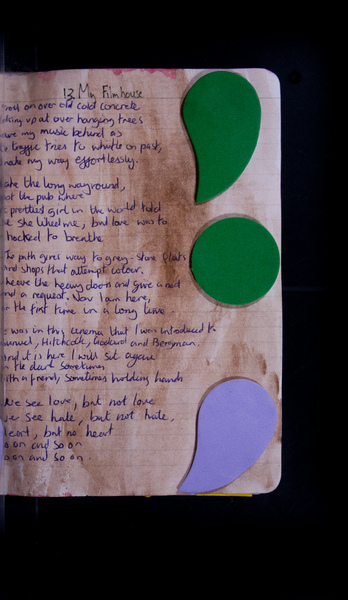 12 Mn Filmhouse
on over old cold concrete
up at over hanging trees
my music behind as
traffic tries to whistle on past,
make my way effortlessly.
the long wayground,
the pub where
prettiest girl in the world told
she liked me, but love was to
hocked to breathe
The path gives way to grey-stone flats
and shops that attempt colour.
heave the heavy doors and give a nod
and a request. Now I am here,
for the first time in a long time.
was in this cinema that I was introduced to
Hitchcock, Godard and Bergman.
and it is here I will sit again
in the dark sometimes
with a friend, sometimes holding hands
We see love, but not love
see hate, but not hate,
heart, but no heart
on and so on
on and so on.